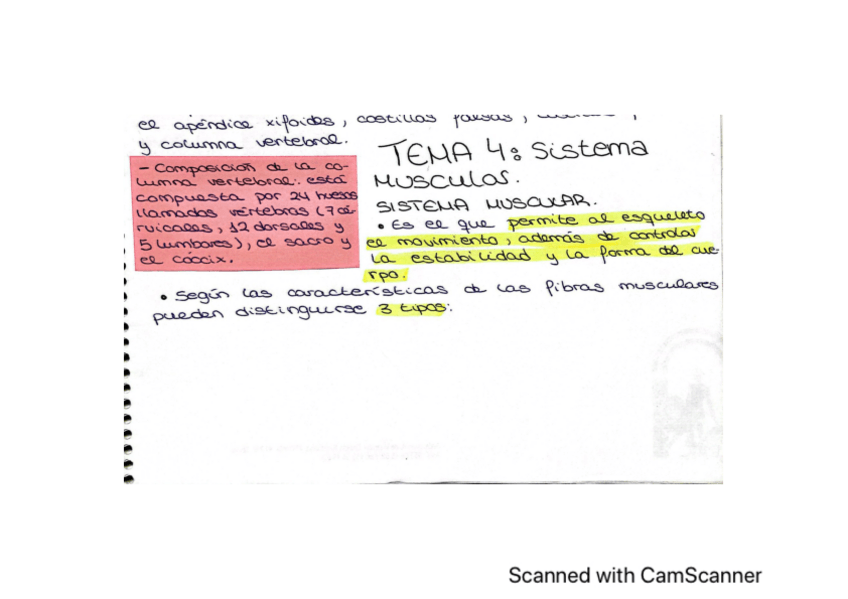 el apéndice xifoides, costillas falsas,
y columna vertebral.
- Composición de la co-
lumna vertebral: está
compuesta por 24 huesos
llamados vértebras (7 ce
rvicales, 12 dorsales y
5 lumbares), el sacro y
el cóccix.
TEMA 4: Sistema
MUSCULAR.
SISTEMA MUSCULAR.
• Es el que permite al esqueleto
el movimiento, además de controlar
la estabilidad y la forma del cue-
rpo.
• Según las características de las fibras musculares
pueden distinguirse 3 tipos:
Scanned with CamScanner